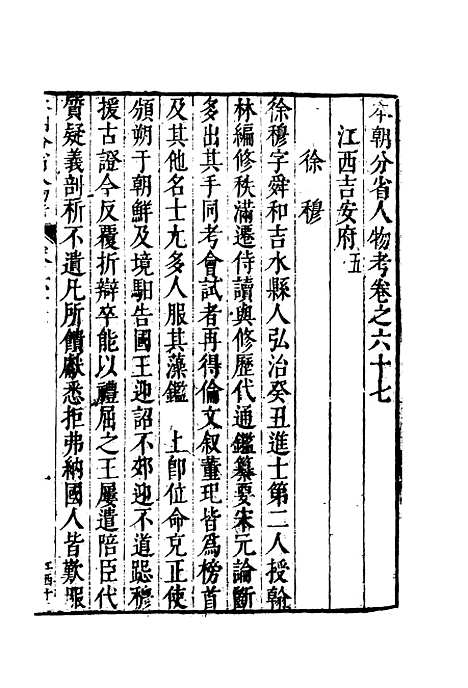 本朝分省人物考卷之六十七
江西吉安府五
徐穆
徐穆字舜和吉水縣人弘治癸丑進士第二人授翰
林編修秩滿遷侍讀與修歷代通鑑纂要宋元論斷
多出其手同考會試者再得倫文叙董玘皆為榜首
及其他名士尢多人服其藻鑑　上卽位命充正使
頒朔于朝鮮及境馹告國王迎詔不郊迎不道跽穆
援古證今反覆折辯卒能以禮屈之王屢遣陪臣代
質疑義剖析不遺凡所饋獻悉拒弗納國人皆歎服
江西十